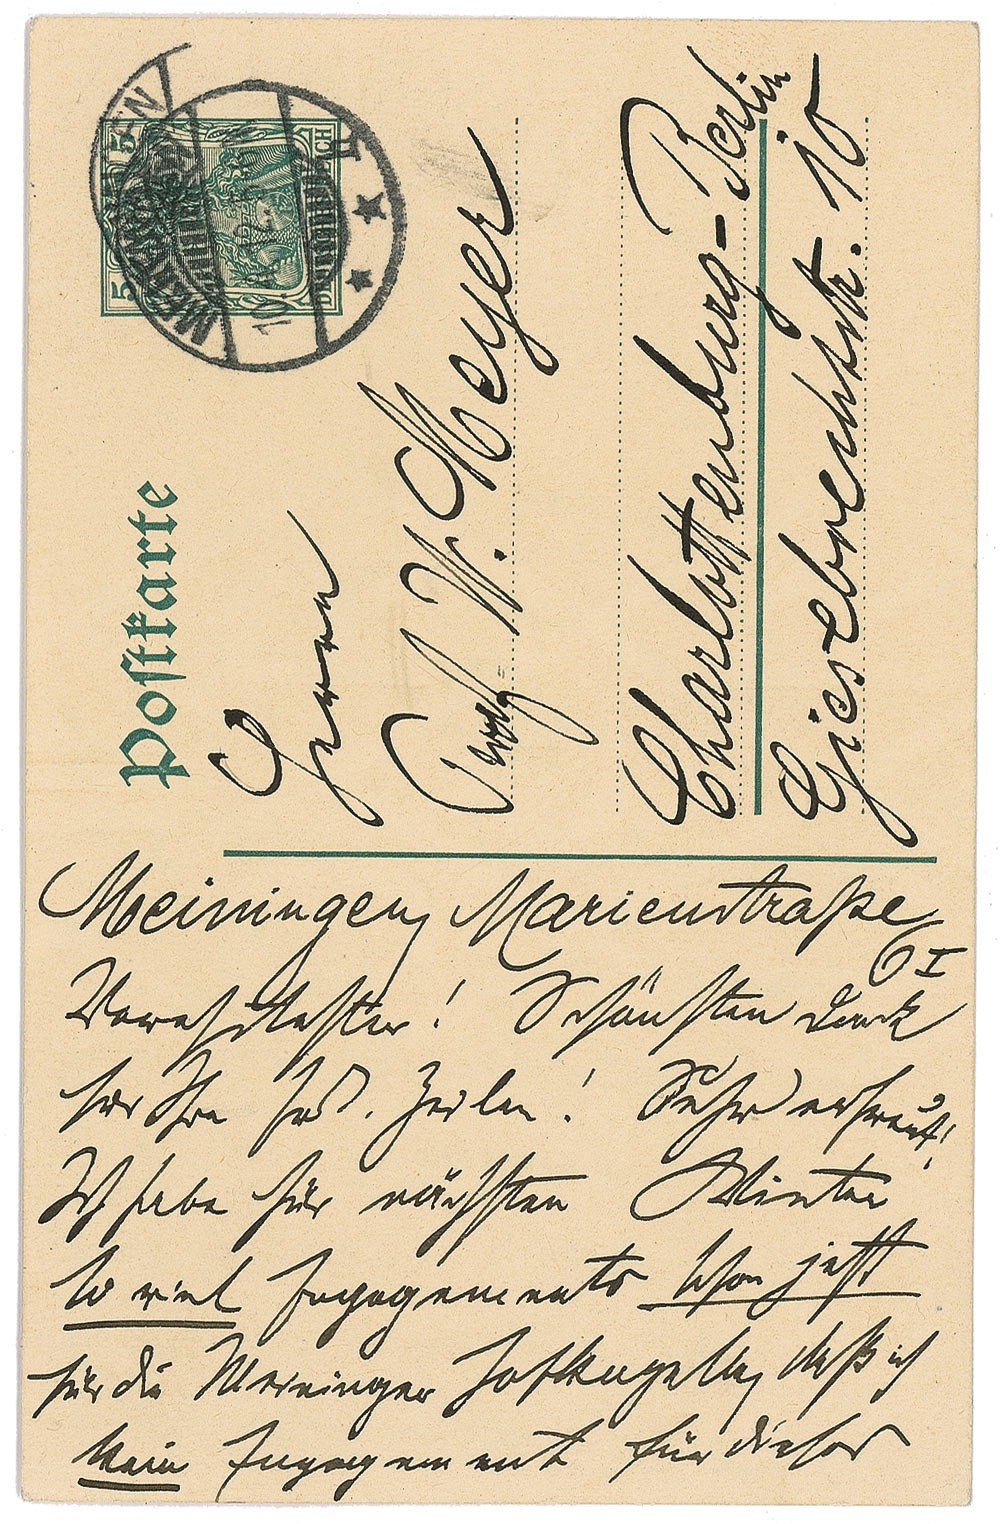 Postkarte
DEUTSCHES REICH
5
5
MEININGEN
Herrn
Prof. W. Meyer
Charlottenburg-Berlin
Giesebrechtstr. 10
Meiningen, Marienstraße
6 I
Verehrtester! Schönsten Dank
für Ihre frdl. Zeilen! Sehr erfreut!
Ich habe für nächsten Winter
so viel Engagements schon jetzt
für die Meininger Hofkapelle, daß ich
kein Engagement für dieses